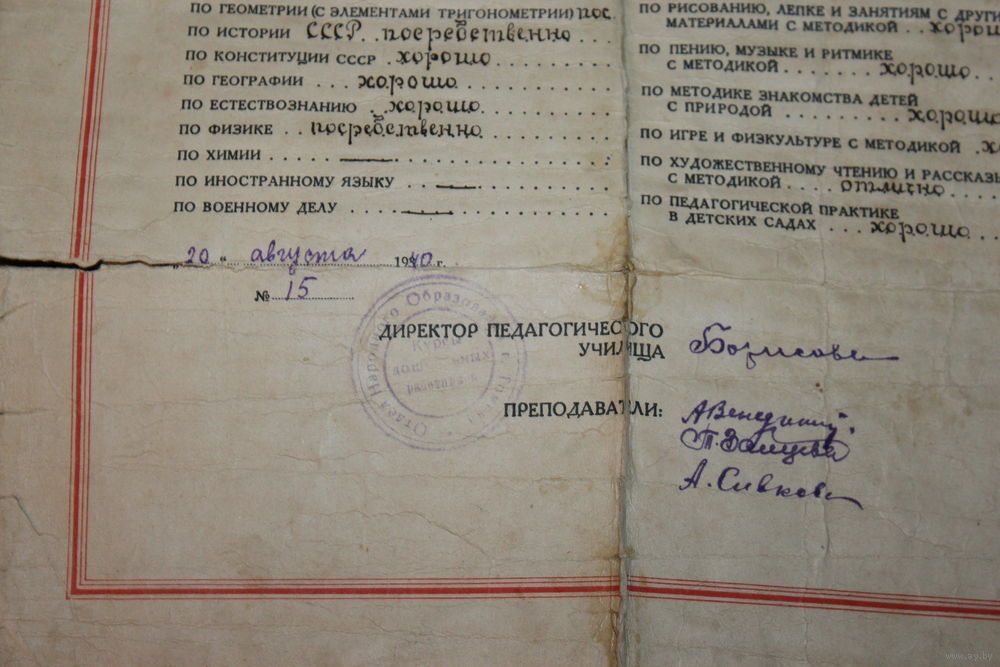 ПО ГЕОМЕТРИИ (С ЭЛЕМЕНТАМИ ТРИГОНОМЕТРИИ) пос.
ПО ИСТОРИИ СССР посредственно
ПО КОНСТИТУЦИИ СССР . хорошо
ПО ГЕОГРАФИИ ... хорошо
ПО ЕСТЕСТВОЗНАНИЮ .. хорошо
ПО ФИЗИКЕ .. посредственно
ПО ХИМИИ ... —
ПО ИНОСТРАННОМУ ЯЗЫКУ .. —
ПО ВОЕННОМУ ДЕЛУ .... —
„20“ августа 1940 г.
№ 15
ПО РИСОВАНИЮ, ЛЕПКЕ И ЗАНЯТИЯМ С ДРУГИ
МАТЕРИАЛАМИ С МЕТОДИКОЙ .. хорош
ПО ПЕНИЮ, МУЗЫКЕ И РИТМИКЕ
С МЕТОДИКОЙ ....... хорошо
ПО МЕТОДИКЕ ЗНАКОМСТВА ДЕТЕЙ
С ПРИРОДОЙ ........ хорошо
ПО ИГРЕ И ФИЗКУЛЬТУРЕ С МЕТОДИКОЙ . х
ПО ХУДОЖЕСТВЕННОМУ ЧТЕНИЮ И РАССКАЗЫ
С МЕТОДИКОЙ .... отлично
ПО ПЕДАГОГИЧЕСКОЙ ПРАКТИКЕ
В ДЕТСКИХ САДАХ ... хорошо
Отдел Народного Образования
Курсы
дошкольных
работников
ДИРЕКТОР ПЕДАГОГИЧЕСКОГО
УЧИЛИЩА
Борисова
ПРЕПОДАВАТЕЛИ:
П. Зайцева
А. Сивкова
www.ay.by